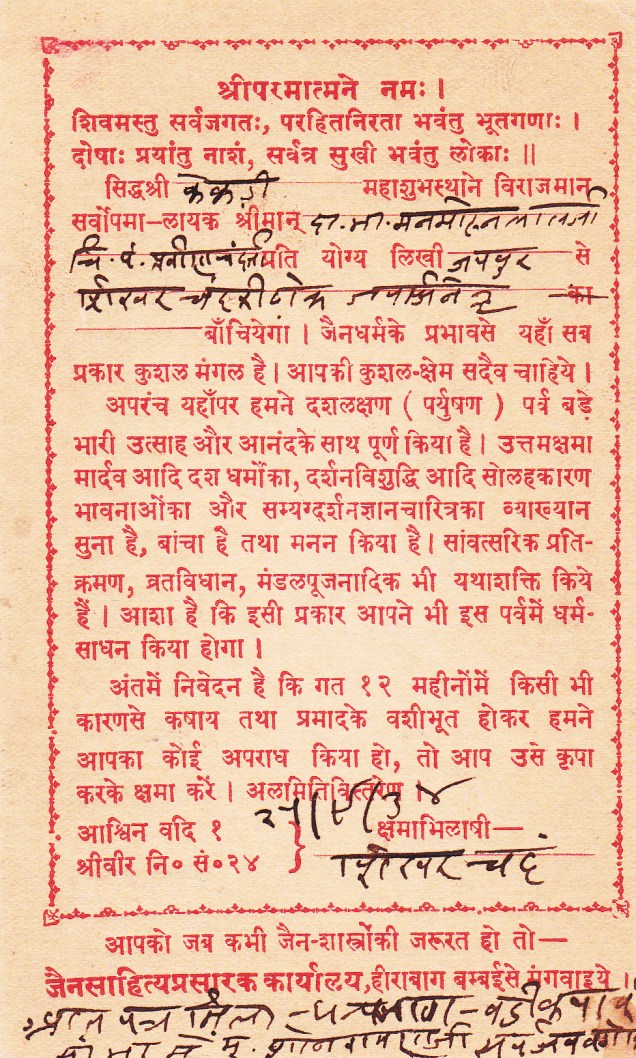 श्रीपरमात्मने नमः।
शिवमस्तु सर्वजगतः, परहितनिरता भवंतु भूतगणाः ।
दोषाः प्रयांतु नाशं, सर्वत्र सुखी भवंतु लोकाः ॥
सिद्धश्री केकड़ी महाशुभस्थाने विराजमान
सर्वोपमा–लायक श्रीमान्
प्रति योग्य लिखी जयपुर से
शिखर चंद का
बाँचियेगा । जैनधर्मके प्रभावसे यहाँ सब
प्रकार कुशल मंगल है। आपकी कुशल-क्षेम सदैव चाहिये।
अपरंच यहाँपर हमने दशलक्षण ( पर्युषण ) पर्व बड़े
भारी उत्साह और आनंदके साथ पूर्ण किया है। उत्तमक्षमा
मार्दव आदि दश धर्मोंका, दर्शनविशुद्धि आदि सोलहकारण
भावनाओंका और सम्यग्दर्शनज्ञानचारित्रका व्याख्यान
सुना है, बांचा है तथा मनन किया है। सांवत्सरिक प्रति-
क्रमण, व्रतविधान, मंडलपूजनादिक भी यथाशक्ति किये
हैं। आशा है कि इसी प्रकार आपने भी इस पर्वमें धर्म-
साधन किया होगा ।
अंतमें निवेदन है कि गत १२ महीनोंमें किसी भी
कारणसे कषाय तथा प्रमादके वशीभूत होकर हमने
आपका कोई अपराध किया हो, तो आप उसे कृपा
करके क्षमा करें । अलमितिविस्तरेण ।
आश्विन वदि १ क्षमाभिलाषी—
श्रीवीर नि० सं०२४ शिखर चंद
आपको जब कभी जैन-शास्त्रोंकी जरूरत हो तो—
जैनसाहित्यप्रसारक कार्यालय, हीराबाग बम्बईसे मंगवाइये ।
पत्र मिला